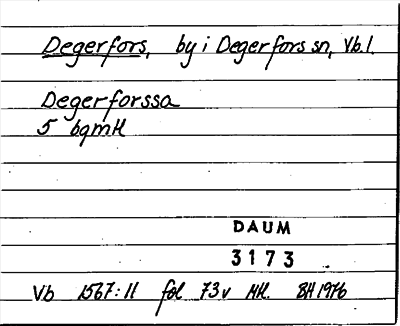 Degerfors, by i Degerfors sn, Vb.l.
Degerforssa
5 bgmH
DAUM
3173
Vb 1567:11 fol 73v HH. BH 1976